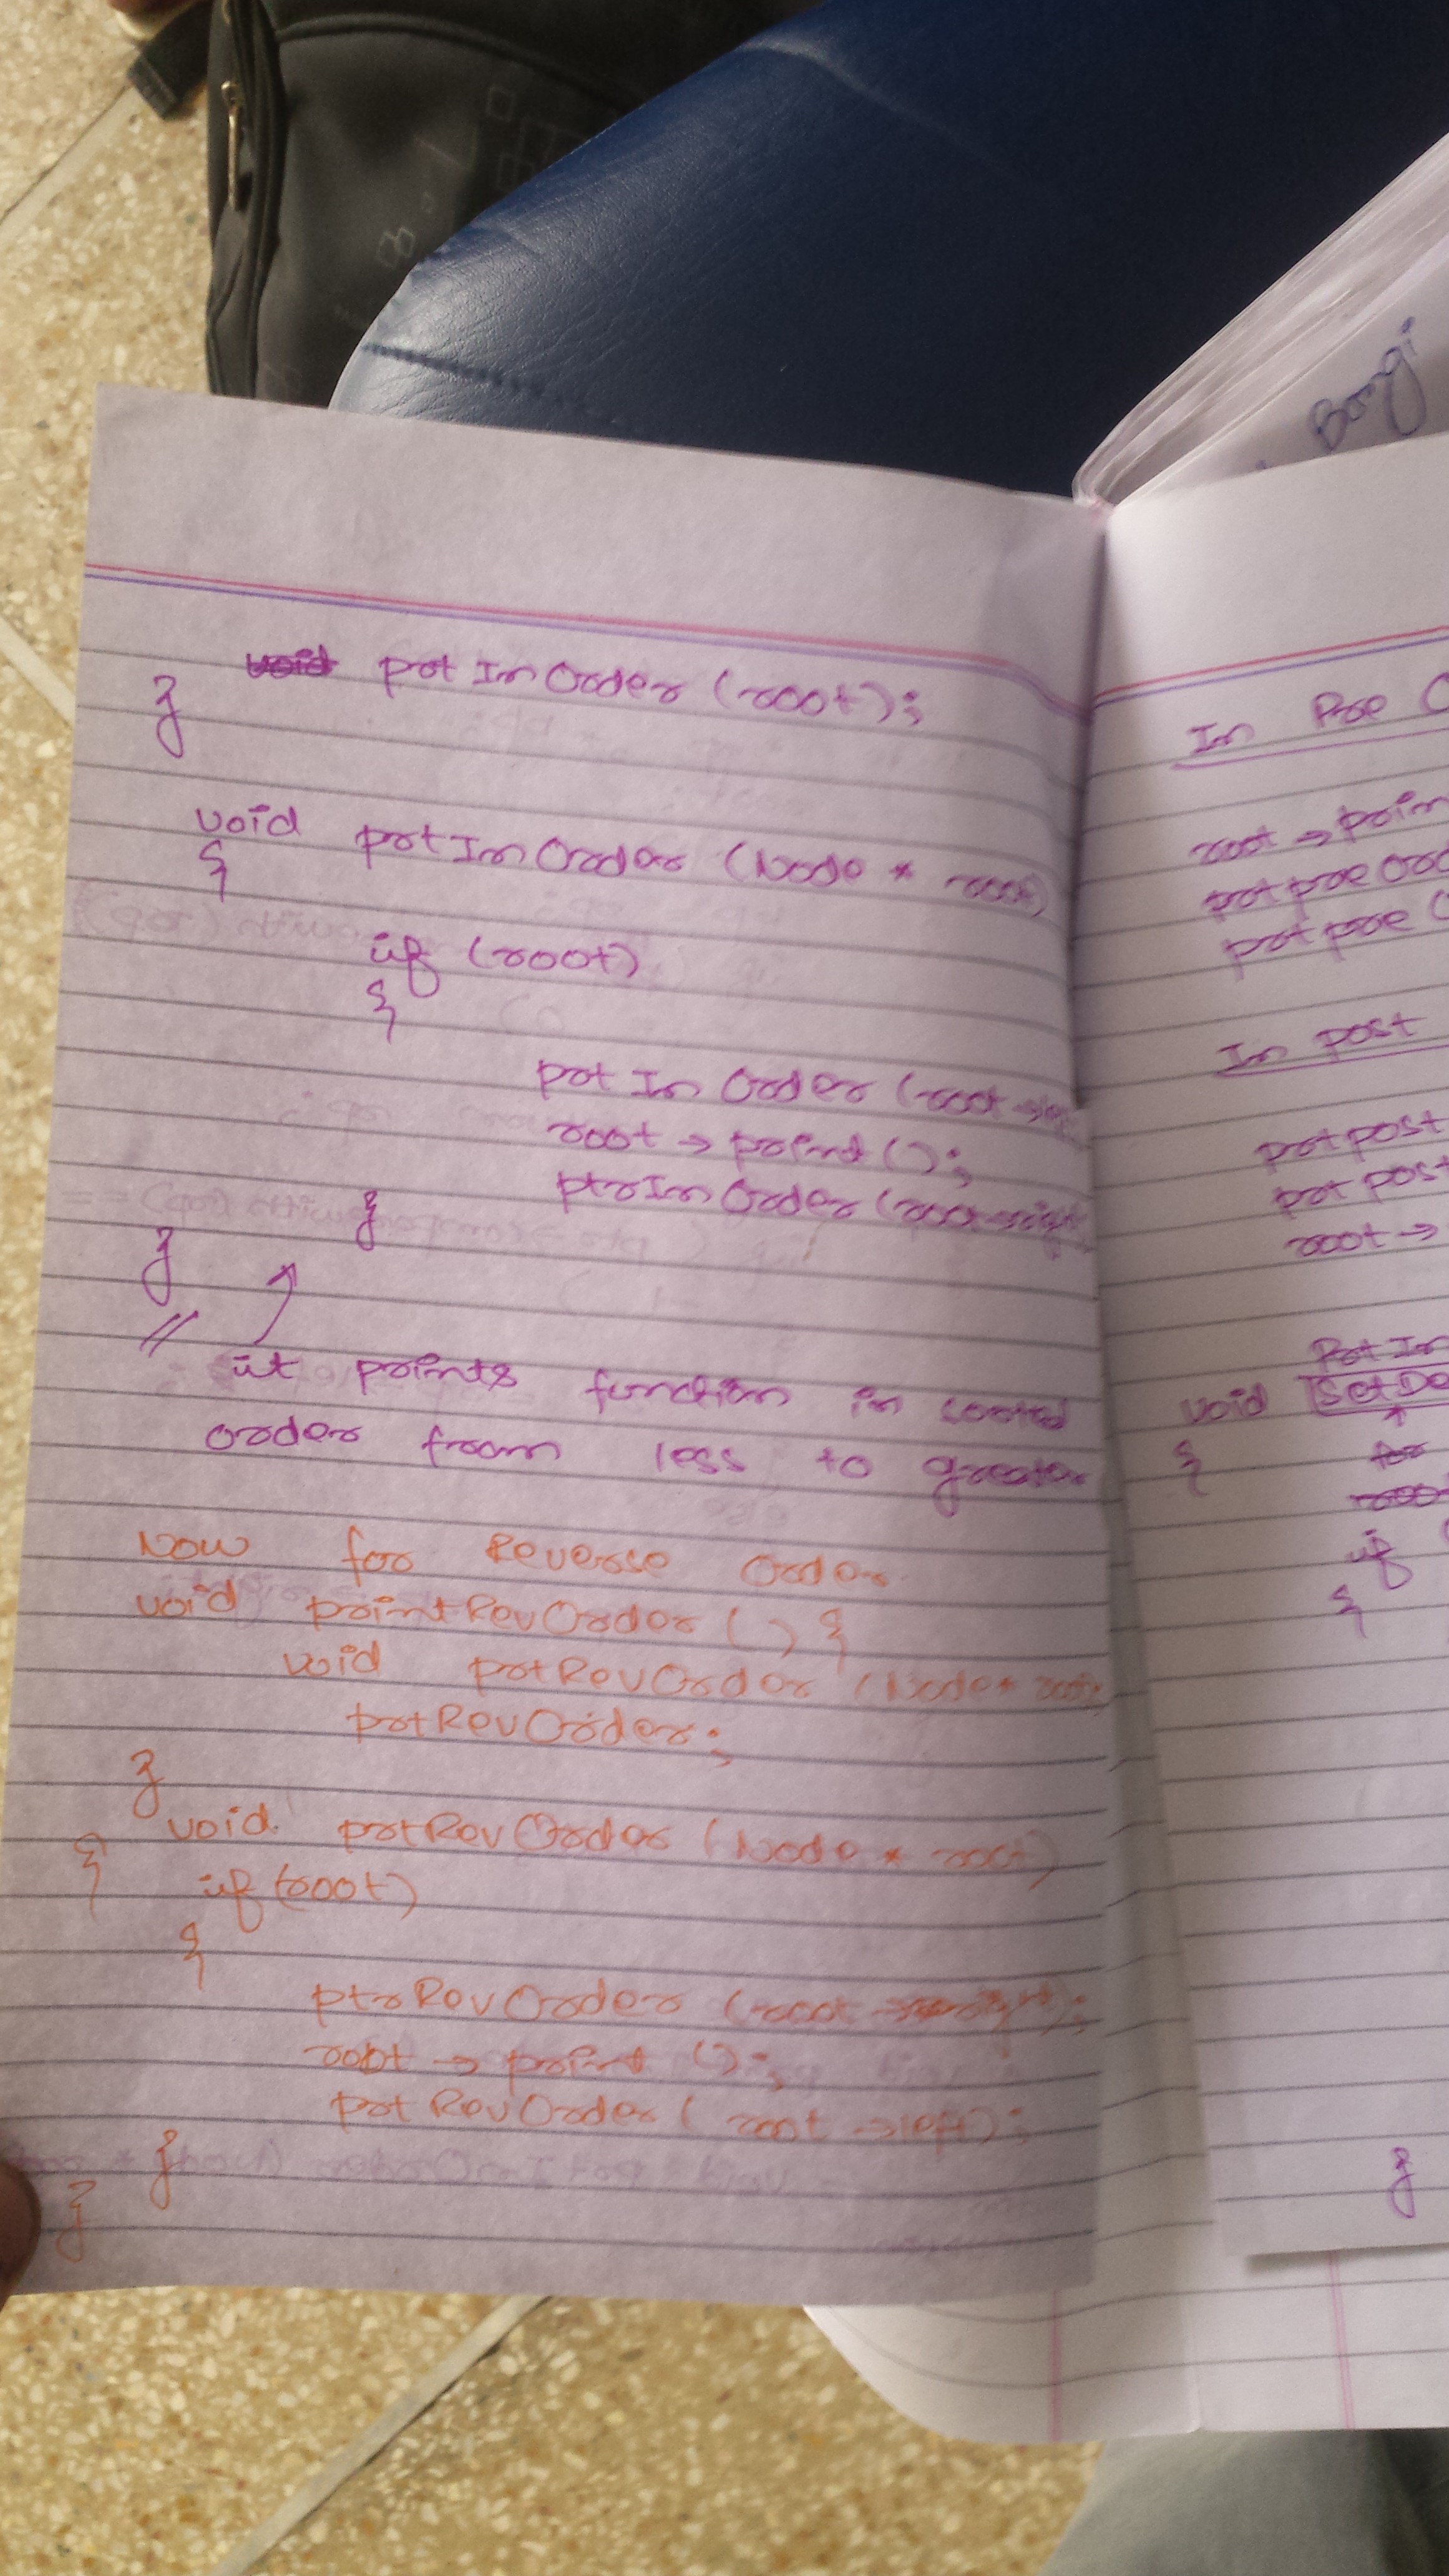 Bongi
prtInOrder (root);
}
void prtInOrder (Node * root)
{
if (root)
{
prt In Order (root →
root → print ();
ptrInOrder (root→right
}
}
//
it prints function in sorted
order from less to greater
Now for Reverse Order
void printRevOrder () {
void prtRevOrder (Node *
prtRevOrder;
}
void prtRevOrder (Node * root)
{
if (root)
{
ptrRevOrder (root → right);
root → print ();
prtRevOrder ( root →left);
}
}
In Pre
root →
prt pre
prt pre (
In post
prt post
prt post
root →
Prt In
void
{
if
{
}